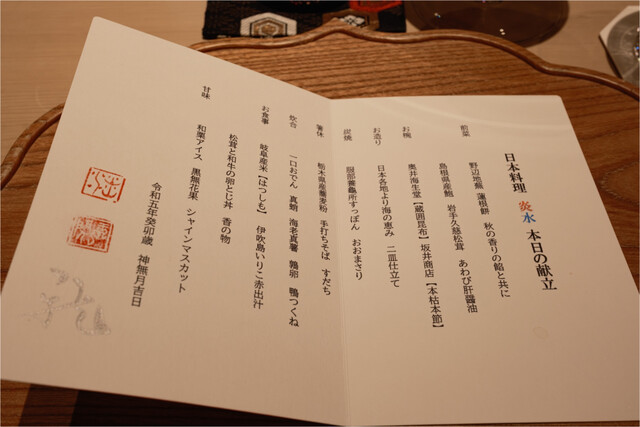 日本料理 炎水 本日の献立
前菜
野辺地蕪 蓮根餅 秋の香りの餡と共に
島根県産鮑 岩手久慈松茸 あわび肝醤油
お椀
奥井海生堂【蔵囲昆布】坂井商店【本枯本節】
お造り
日本各地より海の恵み 二皿仕立て
炭焼
服部養鼈所すっぽん おおまさり
箸休
栃木県産蕎麦粉 手打ちそば すだち
炊合
一口おでん 真蛸 海老真薯 鶉卵 鴨つくね
お食事
岐阜産米【はつしも】 伊吹島いりこ赤出汁
松茸と和牛の卵とじ丼 香の物
甘味
和栗アイス 黒無花果 シャインマスカット
令和五年癸卯歳 神無月吉日